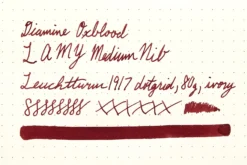 Diamine Oxblood
LAMY Medium Nib
Leuchtturm 1917 dotgrid, 80g, ivory